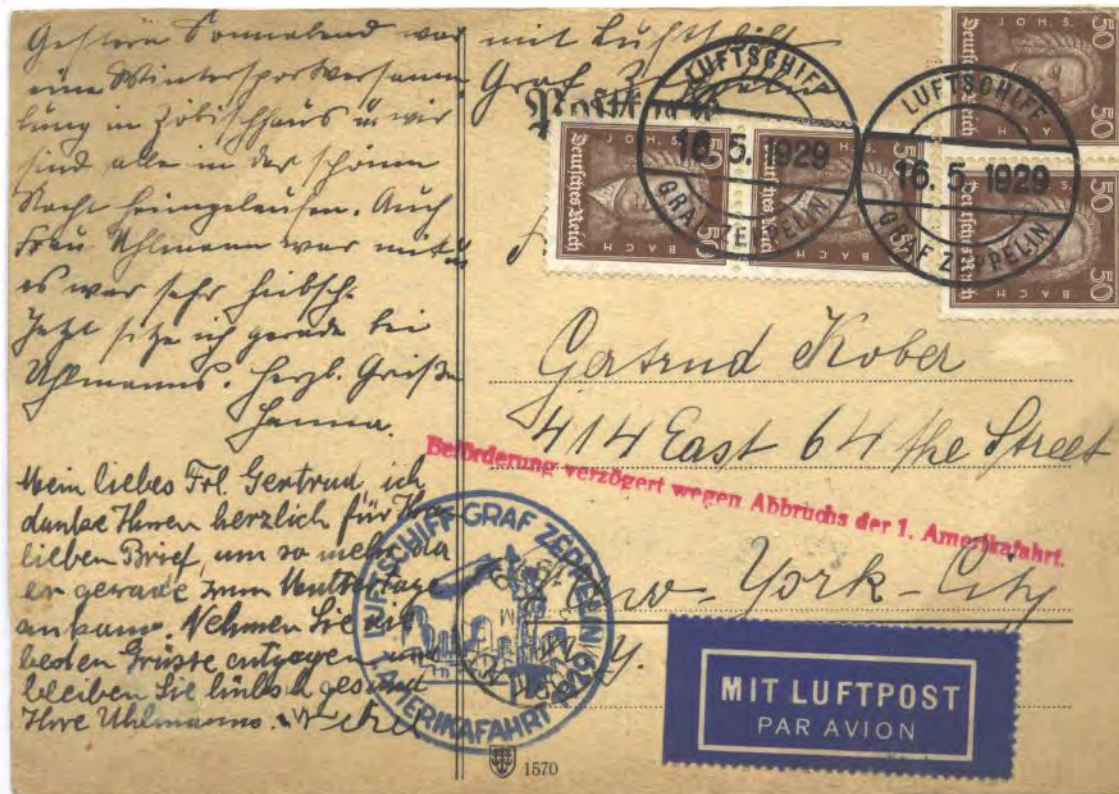 Gestern Sonnabend war
eine Wintersportversamm
lung in Zobischhaus u wir
sind alle in der schönen
Nacht heimgelaufen. Auch
Frau Uhlmann war mit u
es war sehr hübsch.
Jetzt sitze ich gerade bei
Uhlmanns. Herzl. Grüße
Hanna.
Mein liebes Frl. Gertrud, ich
danke Ihnen herzlich für Ihren
lieben Brief, um so mehr da
er gerade zum Muttertage
ankam. Nehmen Sie die
besten Grüsse entgegen und
bleiben Sie hübsch gesund
Ihre Uhlmanns.
mit Luftschiff
Graf Zeppelin
Postkarte
LUFTSCHIFF
16. 5. 1929
GRAF ZEPPELIN
LUFTSCHIFF
16. 5. 1929
GRAF ZEPPELIN
50 JOH. S. BACH 50
Deutsches Reich
50 JOH. S. BACH 50
Deutsches Reich
50 JOH. S. BACH 50
Deutsches Reich
50 JOH. S. BACH 50
Deutsches Reich
Gertrud Kober
414 East 64 the Street
Beförderung verzögert wegen Abbruchs der 1. Amerikafahrt.
New-York-City
N. Y.
LUFTSCHIFF GRAF ZEPPELIN
AMERIKAFAHRT 1929
MIT LUFTPOST
PAR AVION
1570